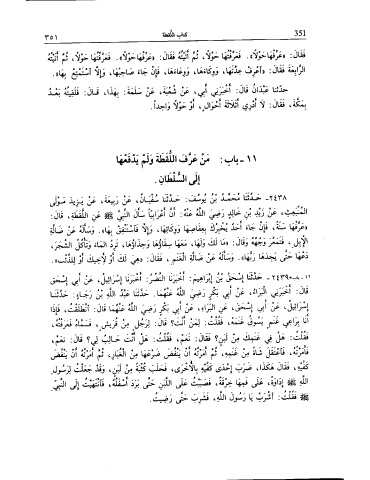 351 كتاب اللقطة ٣٥١
فَقَالَ: «عَرِّفْهَا حَوْلاً». فَعَرَّفْتُهَا حَوْلاً، ثُمَّ أَتَيْتُهُ فَقَالَ: «عَرِّفْهَا حَوْلاً». فَعَرَّفْتُهَا حَوْلاً، ثُمَّ أَتَيْتُهُ
الرَّابِعَةَ فَقَالَ: «اعْرِفْ عِدَّتَهَا، وَوِكَاءَهَا، وَوِعَاءَهَا، فَإِنْ جَاءَ صَاحِبُهَا، وَإِلَّا اسْتَمْتِعْ بِهَا».
حدثنا عَبْدَانُ قَالَ: أَخْبَرَنِي أَبِي، عَنْ شُعْبَةَ، عَنْ سَلَمَةَ: بِهَذَا، قَالَ: فَلَقِيتُهُ بَعْدُ
بِمَكَّةَ، فَقَالَ: لَا أَدْرِي أَثَلَاثَةَ أَحْوَالٍ، أَوْ حَوْلاً وَاحِداً.
١١ - باب: مَنْ عَرَّفَ اللُّقَطَةَ وَلَمْ يَدْفَعْهَا
إِلَى السُّلْطَانِ.
٢٤٣٨ - حَدَّثَنَا مُحَمَّدُ بْنُ يُوسُفَ: حَدَّثَنَا سُفْيَانُ، عَنْ رَبِيعَةَ، عَنْ يَزِيدَ مَوْلَى
الْمُنْبَعِثِ، عَنْ زَيْدِ بْنِ خَالِدٍ رَضِيَ اللَّهُ عَنْهُ: أَنَّ أَعْرَابِيّاً سَأَلَ النَّبِيَّ ﷺ عَنِ اللُّقَطَةِ، قَالَ:
«عَرِّفْهَا سَنَةً، فَإِنْ جَاءَ أَحَدٌ يُخْبِرُكَ بِعِفَاصِهَا وَوِكَائِهَا، وَإِلَّا فَاسْتَنْفِقْ بِهَا». وَسَأَلَهُ عَنْ ضَالَّةِ
الإِبِلِ، فَتَمَعَّرَ وَجْهُهُ وَقَالَ: «مَا لَكَ وَلَهَا، مَعَهَا سِقَاؤُهَا وَحِذَاؤُهَا، تَرِدُ الْمَاءَ وَتَأْكُلُ الشَّجَرَ،
دَعْهَا حَتَّى يَجِدَهَا رَبُّهَا». وَسَأَلَهُ عَنْ ضَالَّةِ الْغَنَمِ، فَقَالَ: «هِيَ لَكَ أَوْ لِأَخِيكَ أَوْ لِلذِّئْبِ».
٢٤٣٩ - حَدَّثَنَا إِسْحَقُ بْنُ إِبْرَاهِيمَ: أَخْبَرَنَا النَّضْرُ: أَخْبَرَنَا إِسْرَائِيلُ، عَنْ أَبِي إِسْحَقَ
قَالَ: أَخْبَرَنِي الْبَرَاءُ، عَنْ أَبِي بَكْرٍ رَضِيَ اللَّهُ عَنْهُمَا. حَدَّثَنَا عَبْدُ اللَّهِ بْنُ رَجَاءٍ: حَدَّثَنَا
إِسْرَائِيلُ، عَنْ أَبِي إِسْحَقَ، عَنِ الْبَرَاءِ، عَنْ أَبِي بَكْرٍ رَضِيَ اللَّهُ عَنْهُمَا قَالَ: انْطَلَقْتُ، فَإِذَا
أَنَا بِرَاعِي غَنَمٍ يَسُوقُ غَنَمَهُ، فَقُلْتُ: لِمَنْ أَنْتَ؟ قَالَ: لِرَجُلٍ مِنْ قُرَيْشٍ، فَسَمَّاهُ فَعَرَفْتُهُ،
فَقُلْتُ: هَلْ فِي غَنَمِكَ مِنْ لَبَنٍ؟ فَقَالَ: نَعَمْ، فَقُلْتُ: هَلْ أَنْتَ حَالِبٌ لِي؟ قَالَ: نَعَمْ،
فَأَمَرْتُهُ، فَاعْتَقَلَ شَاةً مِنْ غَنَمِهِ، ثُمَّ أَمَرْتُهُ أَنْ يَنْفُضَ ضَرْعَهَا مِنَ الْغُبَارِ، ثُمَّ أَمَرْتُهُ أَنْ يَنْفُضَ
كَفَّيْهِ، فَقَالَ هَكَذَا، ضَرَبَ إِحْدَى كَفَّيْهِ بِالْأُخْرَى، فَحَلَبَ كُثْبَةً مِنْ لَبَنٍ، وَقَدْ جَعَلْتُ لِرَسُولِ
اللَّهِ ﷺ إِدَاوَةً، عَلَى فَمِهَا خِرْقَةٌ، فَصَبَبْتُ عَلَى اللَّبَنِ حَتَّى بَرَدَ أَسْفَلُهُ، فَانْتَهَيْتُ إِلَى النَّبِيِّ
ﷺ فَقُلْتُ: اشْرَبْ يَا رَسُولَ اللَّهِ، فَشَرِبَ حَتَّى رَضِيتُ.